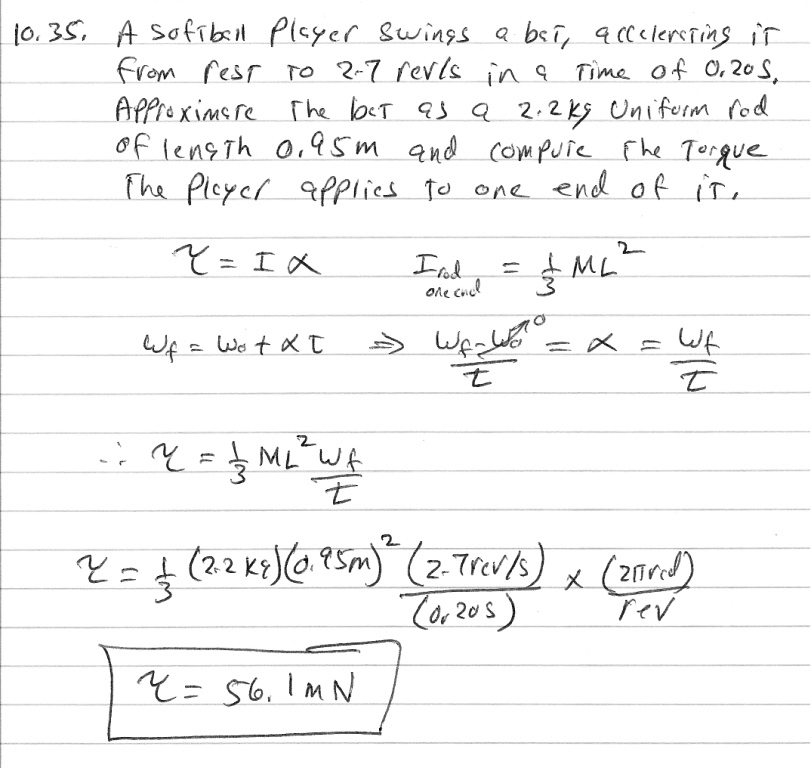 10.35. A softball player swings a bat, accelerating it
from rest to 2.7 rev/s in a time of 0.20 s.
Approximate the bat as a 2.2 kg uniform rod
of length 0.95 m and compute the torque
the player applies to one end of it.
τ = Iα   I rod one end = 1/3 ML²
ωf = ω₀ + αt ⇒ (ωf - ω₀)/t = α = ωf/t   →0
∴ τ = 1/3 ML² ωf/t
τ = 1/3 (2.2 kg)(0.95m)² (2.7 rev/s)/(0.20 s) × (2π rad)/rev
τ = 56.1 mN